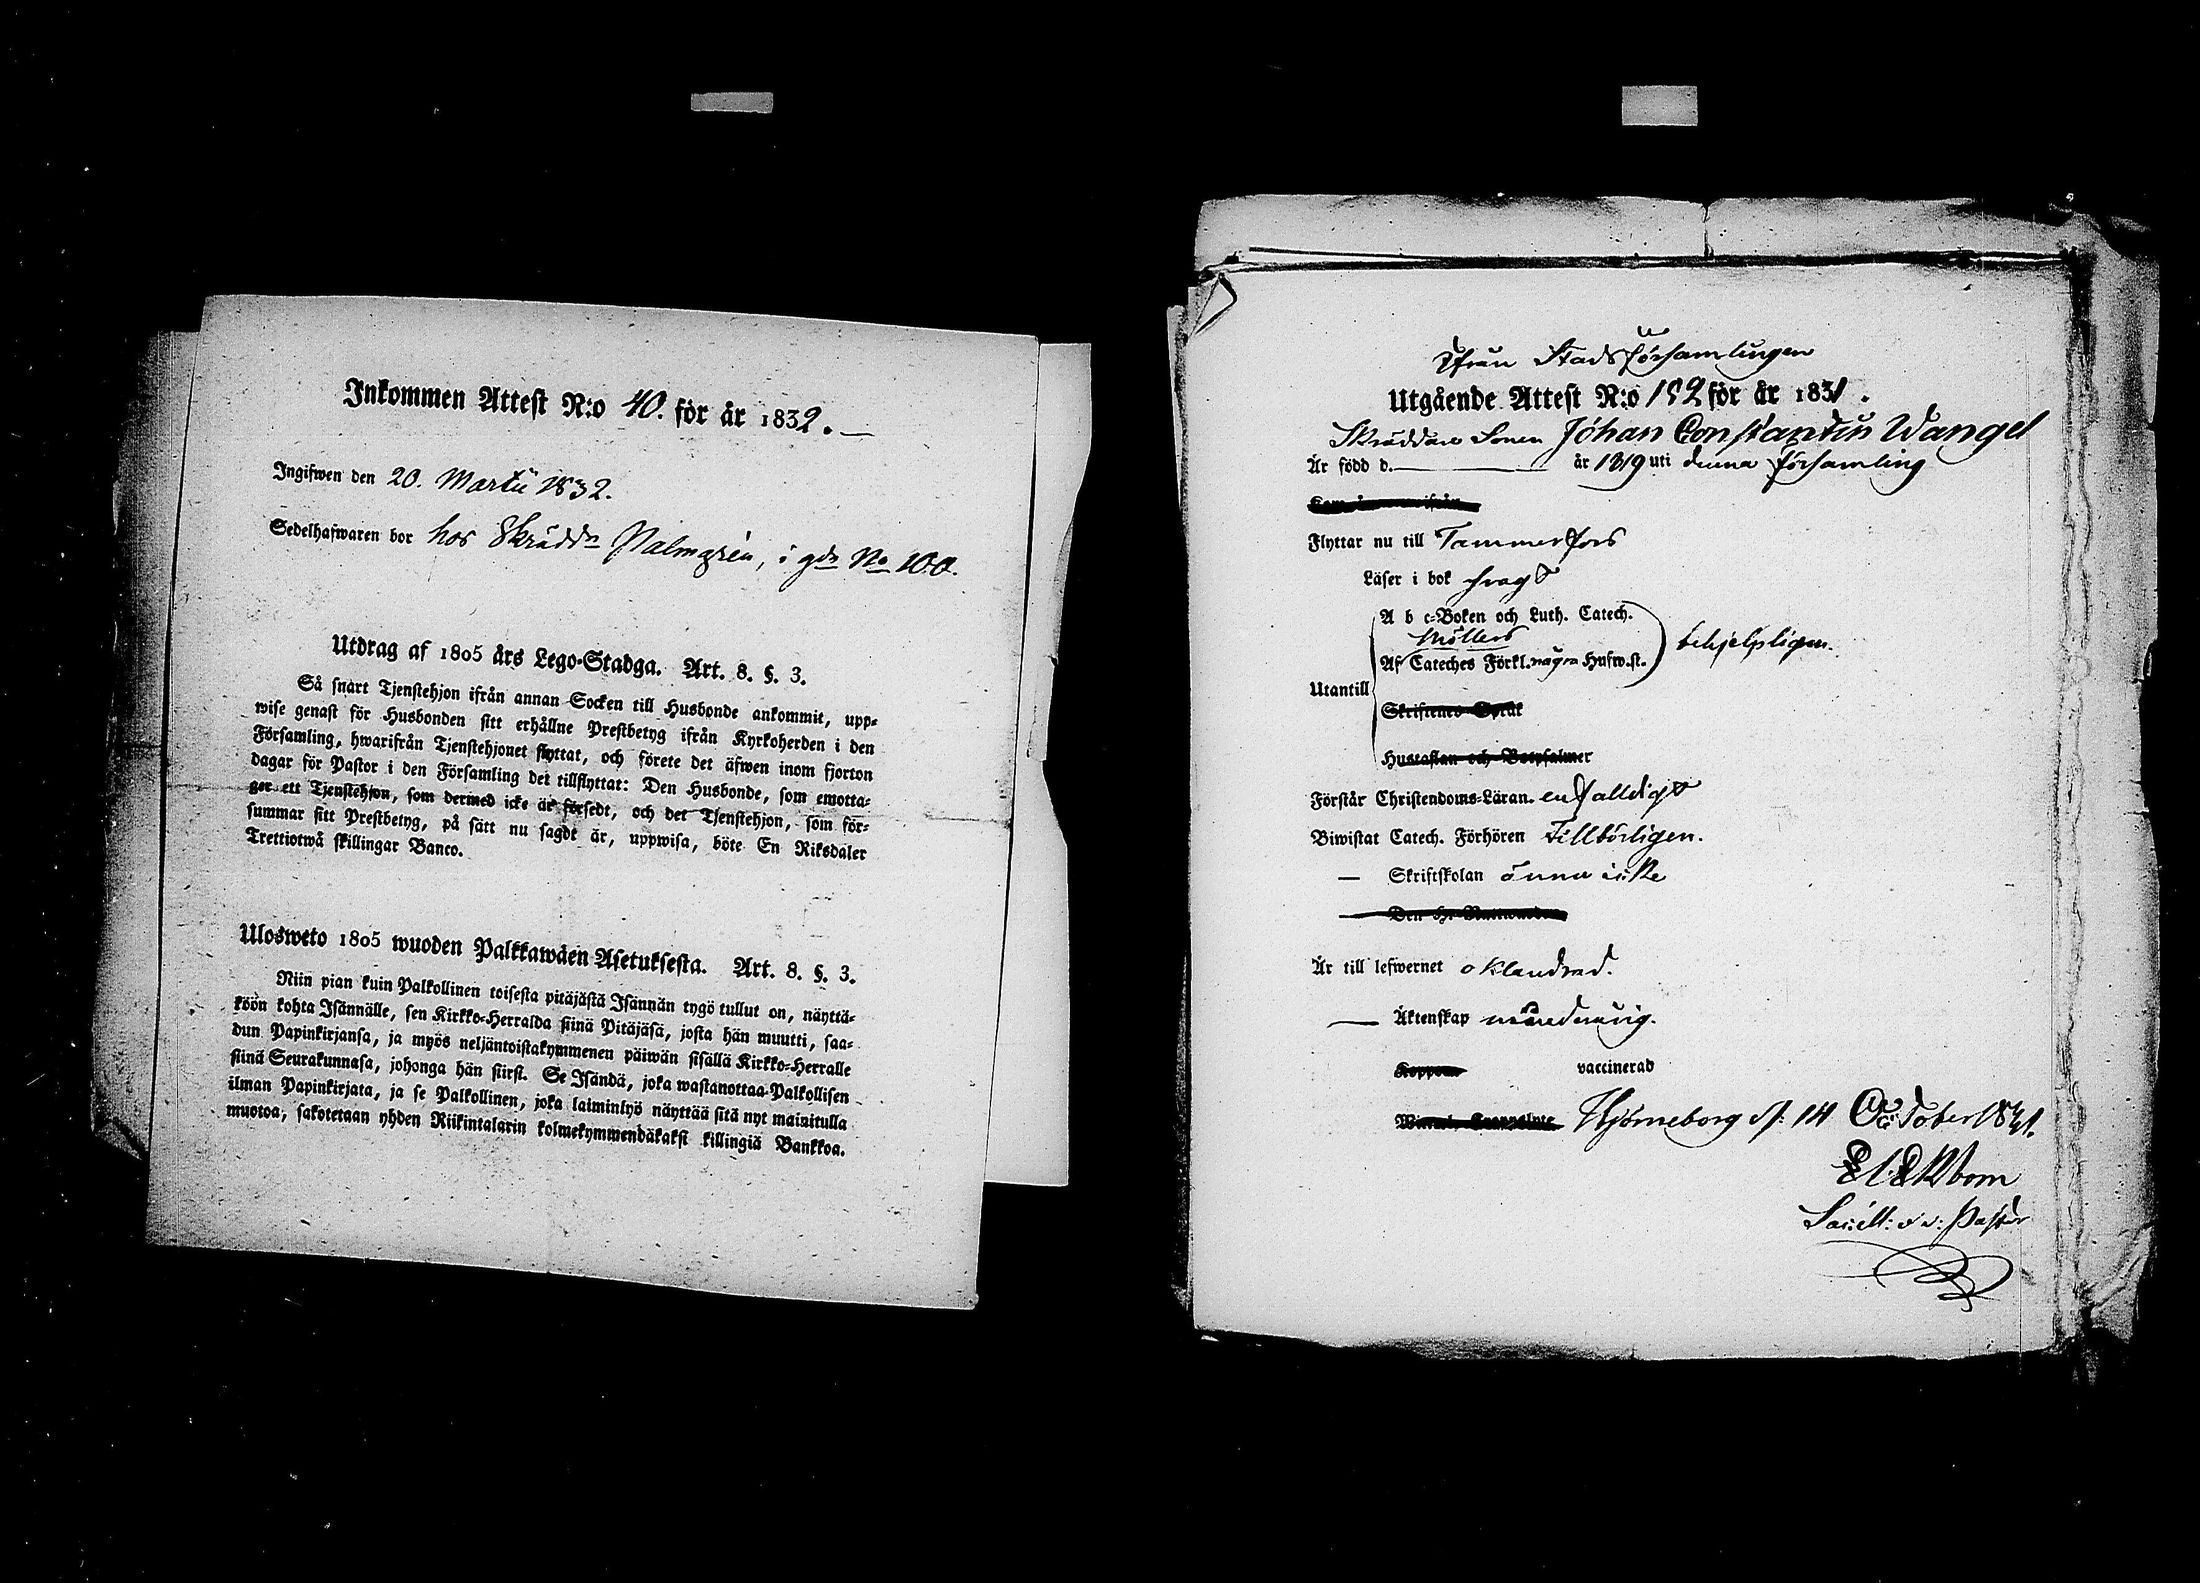 Inkommen Attest N:o 40. för år 1832. —
Ingifwen den 20. Martii 1832.
Sedelhafwaren bor hos Skrädd:n Palmgrén, i gdn No 100.
Utdrag af 1805 års Lego-Stadga. Art. 8. §. 3.
Så snart Tjenstehjon ifrån annan Socken till Husbonde ankommit, upp-
wise genast för Husbonden sitt erhållne Prestbetyg ifrån Kyrkoherden i den
Församling, hwarifrån Tjenstehjonet flyttat, och förete det äfwen inom fjorton
dagar för Pastor i den Församling det tillflyttat: Den Husbonde, som emotta-
ger ett Tjenstehjon, som dermed icke är försedt, och det Tjenstehjon, som för-
summar sitt Prestbetyg, på sätt nu sagdt är, uppwisa, böte En Riksdaler
Trettiotwå skillingar Banco.
Ulosweto 1805 wuoden Palkkawäen Asetuksesta. Art. 8. §. 3.
Niin pian kuin Palkollinen toisesta pitäjästä Isännän tygö tullut on, näyttä-
köön kohta Isännälle, sen Kirkko-Herralda siinä Pitäjäsä, josta hän muutti, saa-
dun Papinkirjansa, ja myös neljäntoistakymmenen päiwän sisällä Kirkko-Herralle
siinä Seurakunnasa, johonga hän siirsi. Se Isändä, joka wastanottaa Palkollisen
ilman Papinkirjata, ja se Palkollinen, joka laiminlyö näyttää sitä nyt mainitulla
muotoa, sakotetaan yhden Riikintalarin kolmekymmendäkaksi killingiä Bankkoa.
Ifrån Stadsförsamlingen
Utgående Attest N:o 152 för år 1831.
Skräddare Sonen Johan Constantin Wangel
Är född d. — år 1819 uti denna församling
Flyttar nu till Tammerfors
Läser i bok svagt
A b c-Boken och Luth. Catech.
Möllers
Af Cateches Förkl. några Hufw.st.
behjelpligen.
Utantill
Skriftenes Språk
Hustaflan och Botpsalmer
Förstår Christendoms-Läran. enfalldigt
Biwistat Catech. Förhören tillbörligen.
— Skriftskolan ännu icke
Är till lefwernet oklandrad.
— Äktenskap minderårig.
Koppor vaccinerad
Björneborg d. 14 October 1831.
Ekbom
Sacell: v. v: Pastor